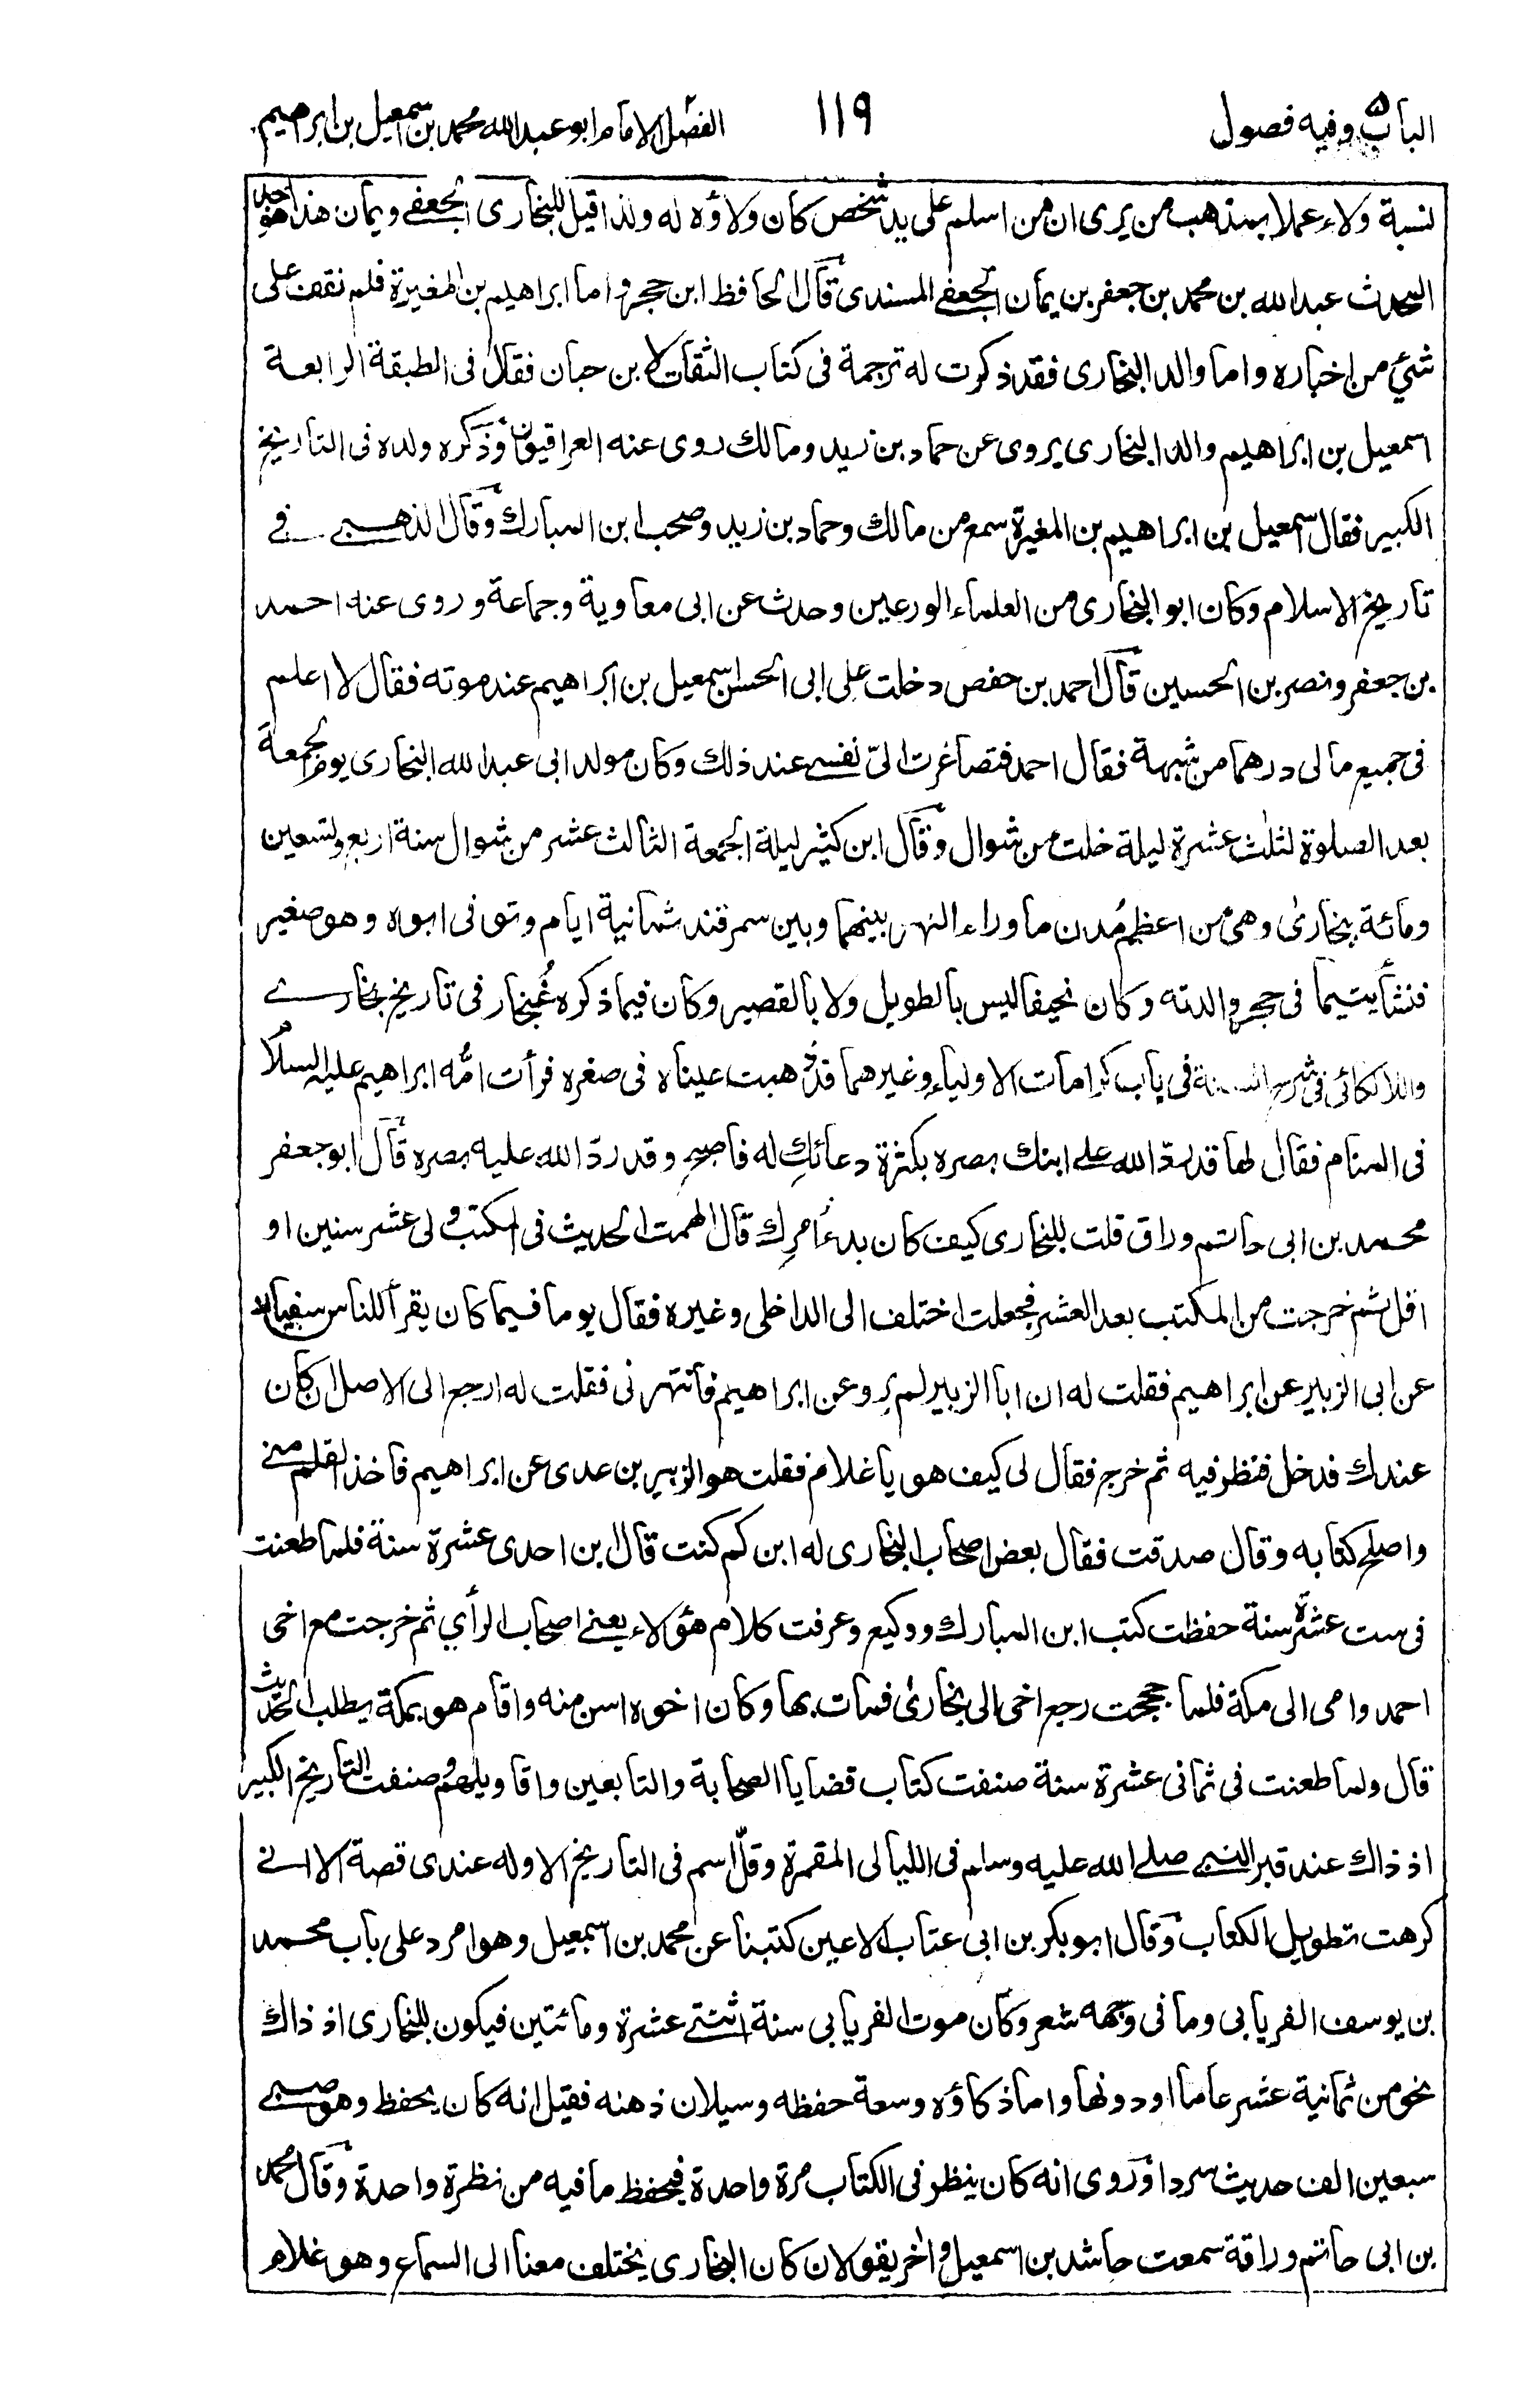 الباب ۵ وفيه فصول
۱۱۹
الفصل الامام ابو عبدالله محمد بن اسمعيل بن ابراهيم
نسبة ولاء عملا بمذهب من يرى ان من اسلم على يد شخص كان ولاؤه له ولذا قيل للبخارى الجعفى ويمان هذا هو جد
المحدث عبدالله بن محمد بن جعفر بن يمان الجعفى المسندى قال الحافظ ابن حجر واما ابراهيم بن المغيرة فلم نقف على
شئ من اخباره واما والد البخارى فقد ذكرت له ترجمة فى كتاب الثقات لابن حبان فقال فى الطبقة الرابعة
اسمعيل بن ابراهيم والد البخارى يروى عن حماد بن زيد ومالك روى عنه العراقيون وذكره ولده فى التاريخ
الكبير فقال اسمعيل بن ابراهيم بن المغيرة سمع من مالك وحماد بن زيد وصحب ابن المبارك وقال الذهبى فى
تاريخ الاسلام وكان ابو البخارى من العلماء الورعين وحدث عن ابى معاوية وجماعة وروى عنه احمد
بن جعفر ونصر بن الحسين قال احمد بن حفص دخلت على ابى الحسن اسمعيل بن ابراهيم عند موته فقال لا اعلم
فى جميع مالى درهما من شبهة فقال احمد فتصاغرت الىّ نفسى عند ذلك وكان مولد ابى عبدالله البخارى يوم الجمعة
بعد الصلوة لثلث عشرة ليلة خلت من شوال وقال ابن كثير ليلة الجمعة الثالث عشر من شوال سنة اربع وتسعين
ومائة ببخارىٰ وهى من اعظم مُدن ما وراء النهر بينهما وبين سمرقند ثمانية ايام وتوفى ابوه وهو صغير
فنشأ يتيما فى حجر والدته وكان نحيفا ليس بالطويل ولا بالقصير وكان فيما ذكره غُنجار فى تاريخ بخارى
واللالكائى فى شرح السنة فى باب كرامات الاولياء وغيرهما قد ذهبت عيناه فى صغره فرأت امُّه ابراهيم عليه السلام
فى المنام فقال لها قد ردّ الله على ابنك بصره بكثرة دعائكِ له فاصبح وقد ردّ الله عليه بصره قال ابو جعفر
محمد بن ابى حاتم وراق قلت للبخارى كيف كان بدءُ امرِك قال الهمت الحديث فى المكتب ولى عشر سنين او
اقل ثم خرجت من المكتب بعد العشر فجعلت اختلف الى الداخلى وغيره فقال يوما فيما كان يقرأ للناس سفيان
عن ابى الزبير عن ابراهيم فقلت له ان ابا الزبير لم يرو عن ابراهيم فانتهرنى فقلت له ارجع الى الاصل ان كان
عندك فدخل فنظر فيه ثم خرج فقال لى كيف هو يا غلام فقلت هو الزبير بن عدى عن ابراهيم فاخذ القلم منى
واصلح كتابه وقال صدقت فقال بعض اصحاب البخارى له ابن كم كنت قال ابن احدى عشرة سنة فلما طعنت
فى ست عشرة سنة حفظت كتب ابن المبارك ووكيع وعرفت كلام هؤلاء يعنى اصحاب الرأي ثم خرجت مع اخى
احمد وامى الى مكة فلما حججت رجع اخى الى بخارىٰ فمات بها وكان اخوه اسن منه واقام هو بمكة يطلب الحديث
قال ولما طعنت فى ثمانى عشرة سنة صنفت كتاب قضايا الصحابة والتابعين واقاويلهم وصنفت التاريخ الكبير
اذ ذاك عند قبر النبى صلى الله عليه وسلم فى الليالى المقمرة وقلّ اسم فى التاريخ الا وله عندى قصة الا انى
كرهت تطويل الكتاب وقال ابو بكر بن ابى عتاب الاعين كتبنا عن محمد بن اسمعيل وهو امرد على باب محمد
بن يوسف الفريابى وما فى وجهه شعر وكان موت الفريابى سنة اثنتى عشرة ومائتين فيكون للبخارى اذ ذاك
نحو من ثمانية عشر عاما او دونها واما ذكاؤه وسعة حفظه وسيلان ذهنه فقيل انه كان يحفظ وهو صبى
سبعين الف حديث سردا وروى انه كان ينظر فى الكتاب مرة واحدة فيحفظ ما فيه من نظرة واحدة وقال محمد
بن ابى حاتم وراقة سمعت حاشد بن اسمعيل واٰخر يقولان كان البخارى يختلف معنا الى السماع وهو غلام